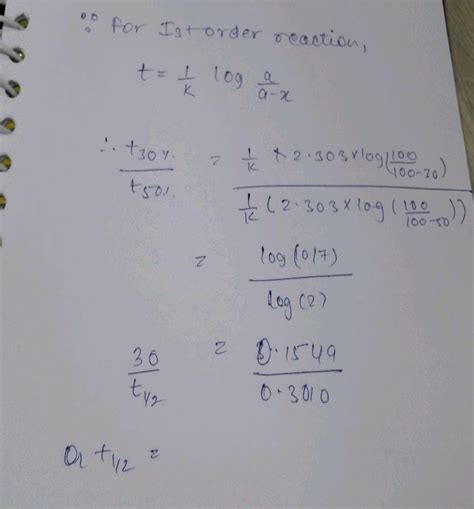 ∵ for Ist order reaction,
t = 1/K log a/a-x
∴ t30% / t50% = 1/K × 2.303 × log(100/100-30) / 1/K (2.303 × log(100/100-50))
= log(10/7) / log(2)
30/t1/2 = 0.1549/0.3010
Or t1/2 =